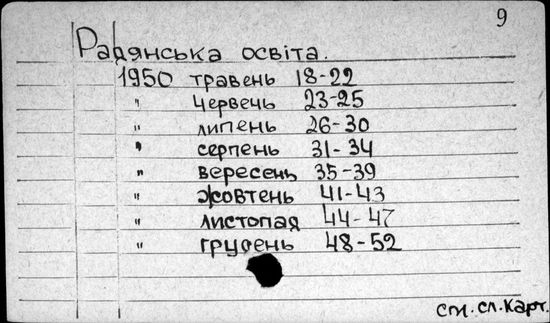 9
Радянська освіта.
1950 травень 18-22
" червень 23-25
" липень 26-30
" серпень 31-34
" вересень 35-39
" жовтень 41-43
" листопад 44-47
" грудень 48-52
см. сл. карт.